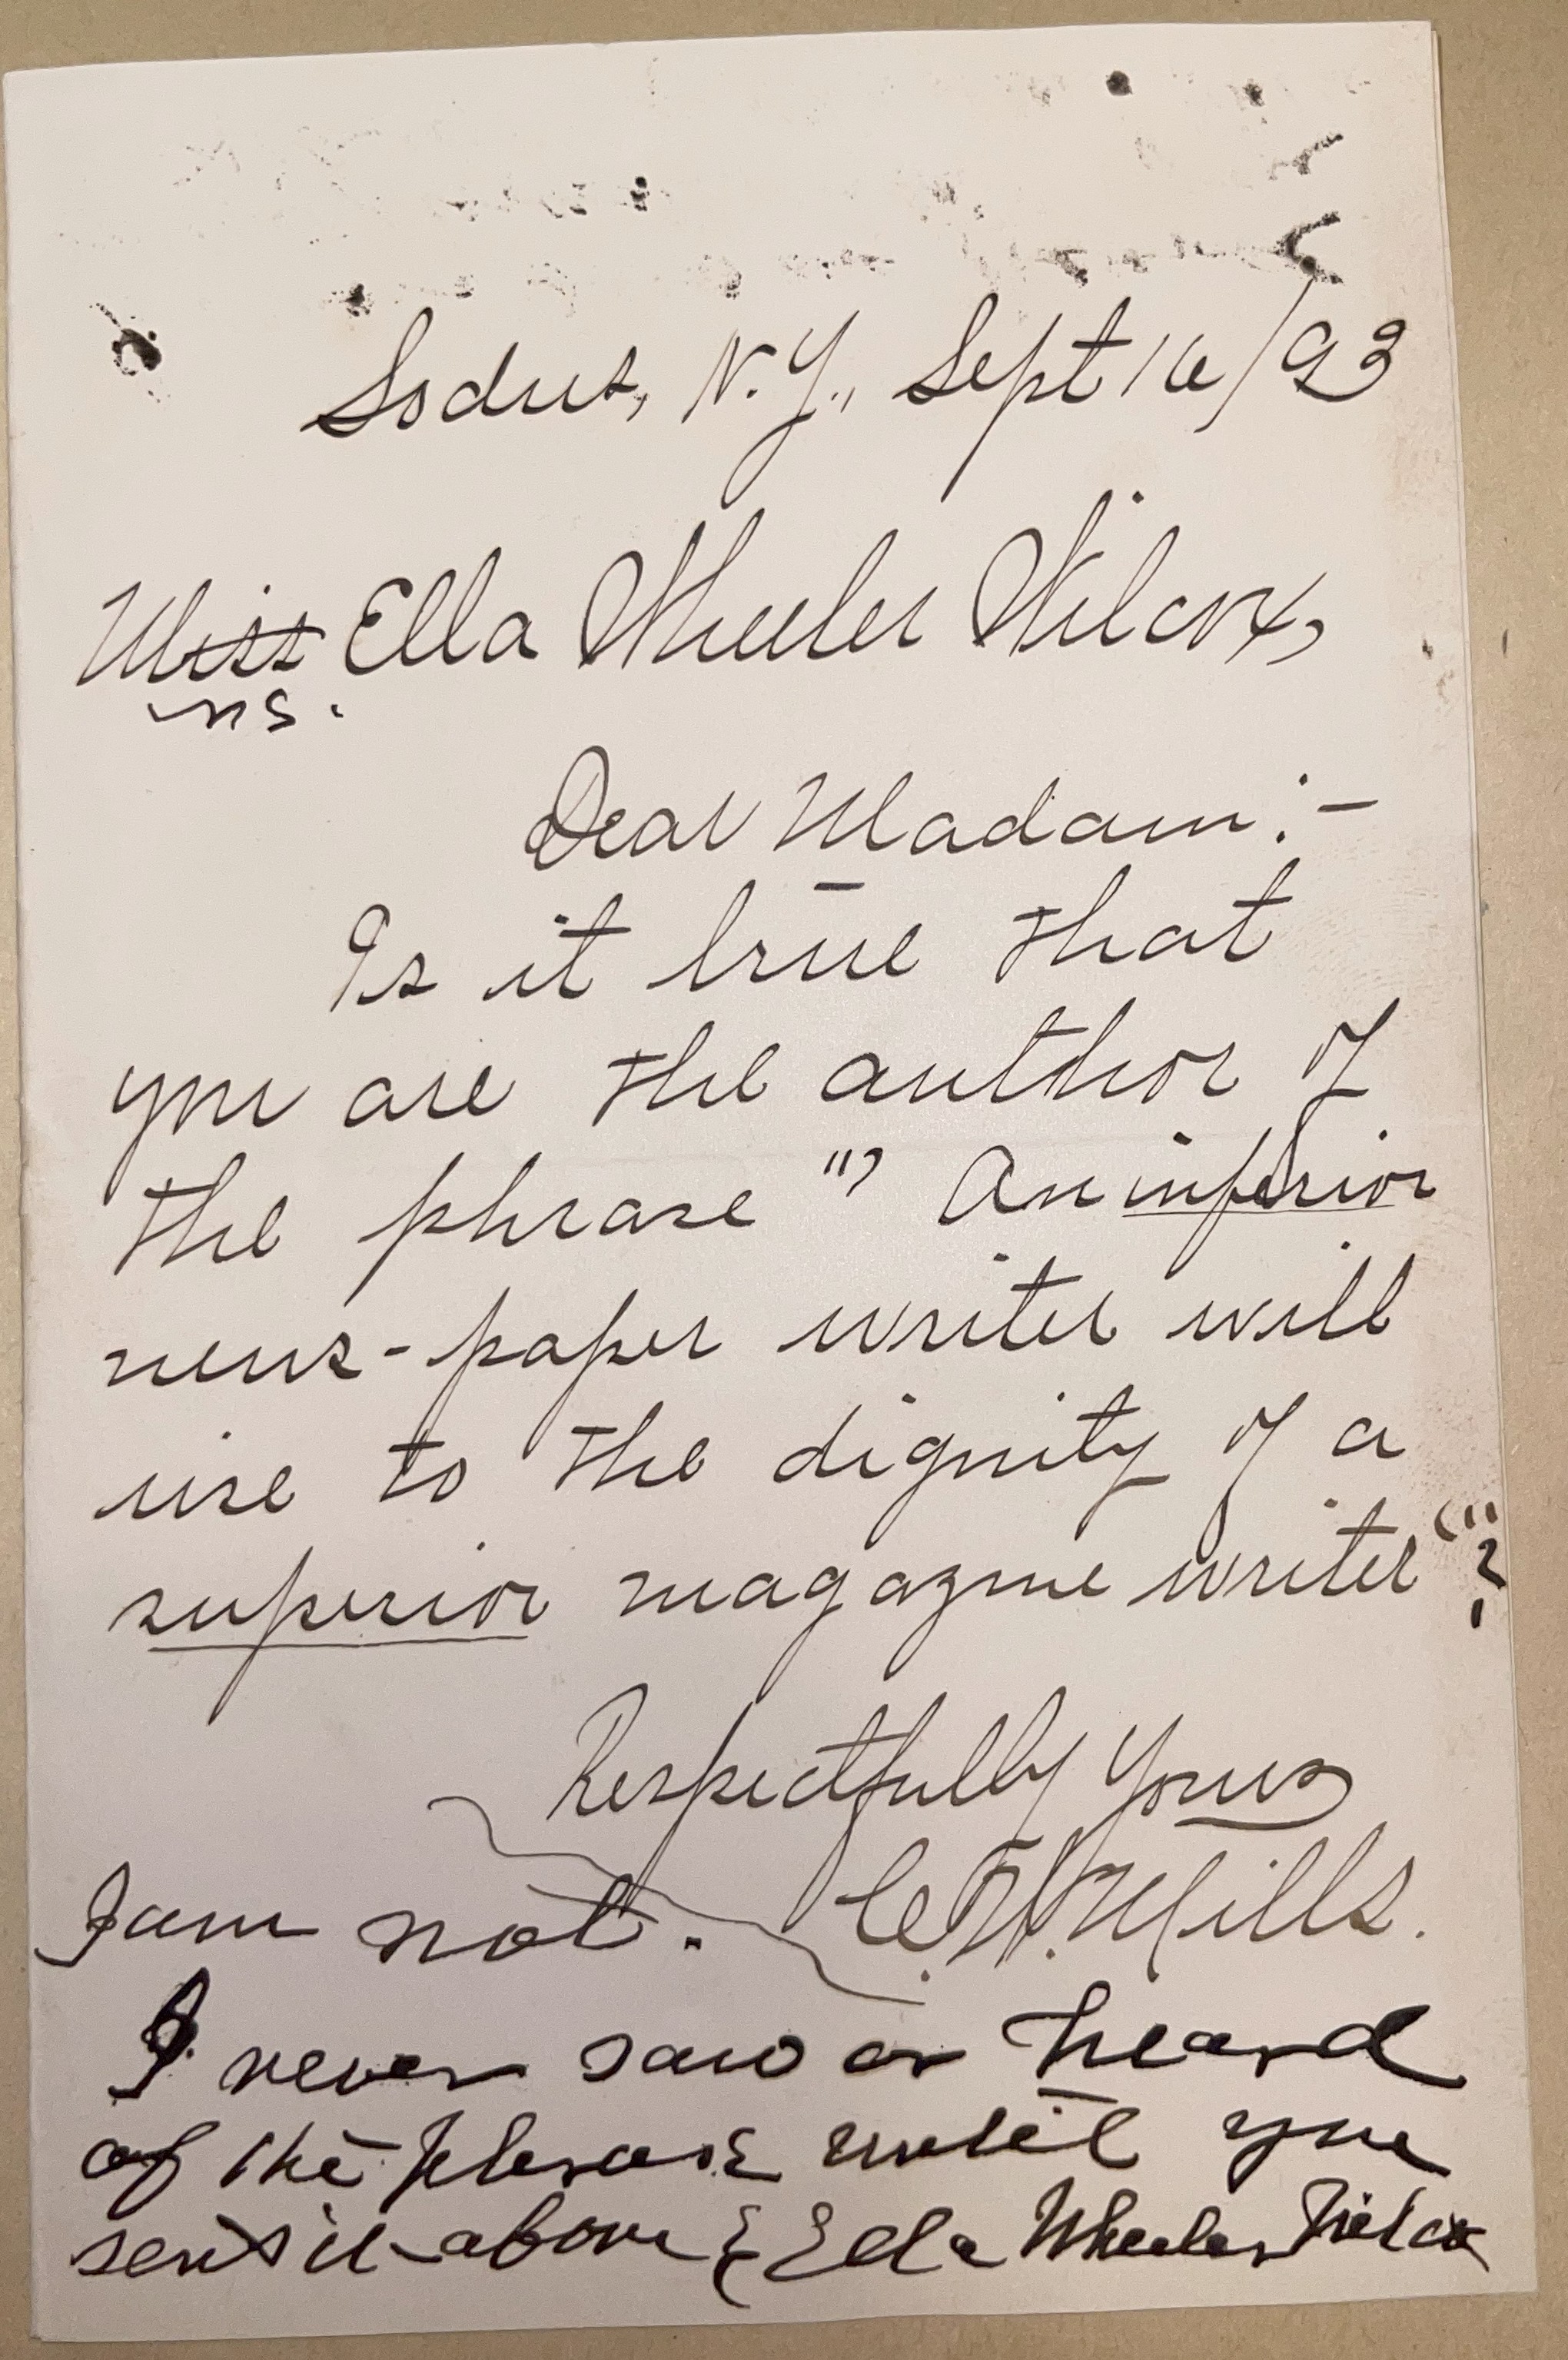 Sodus, N.Y., Sept 16/93
Miss Ella Wheeler Wilcox,
rs.
Dear Madam:-
Is it true that
you are the author of
the phrase "' An inferior
news-paper writer will
rise to the dignity of a
superior magazine writer'"?
Respectfully Yours
C.W. Mills.
I am not.
I never saw or heard
of the phrase until you
sent it above Ella Wheeler Wilcox